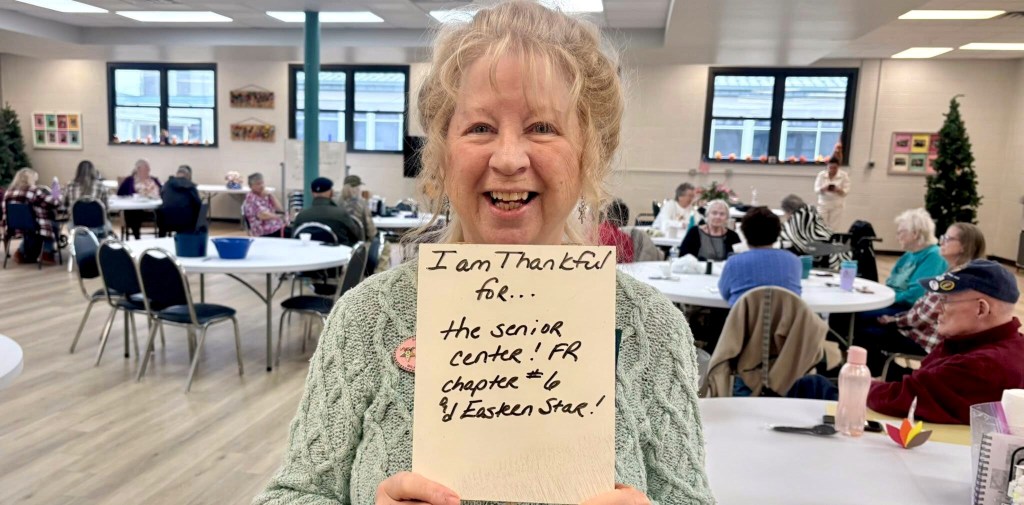 I am Thankful
for...
the senior
center! FR
chapter #6
and Eastern Star!